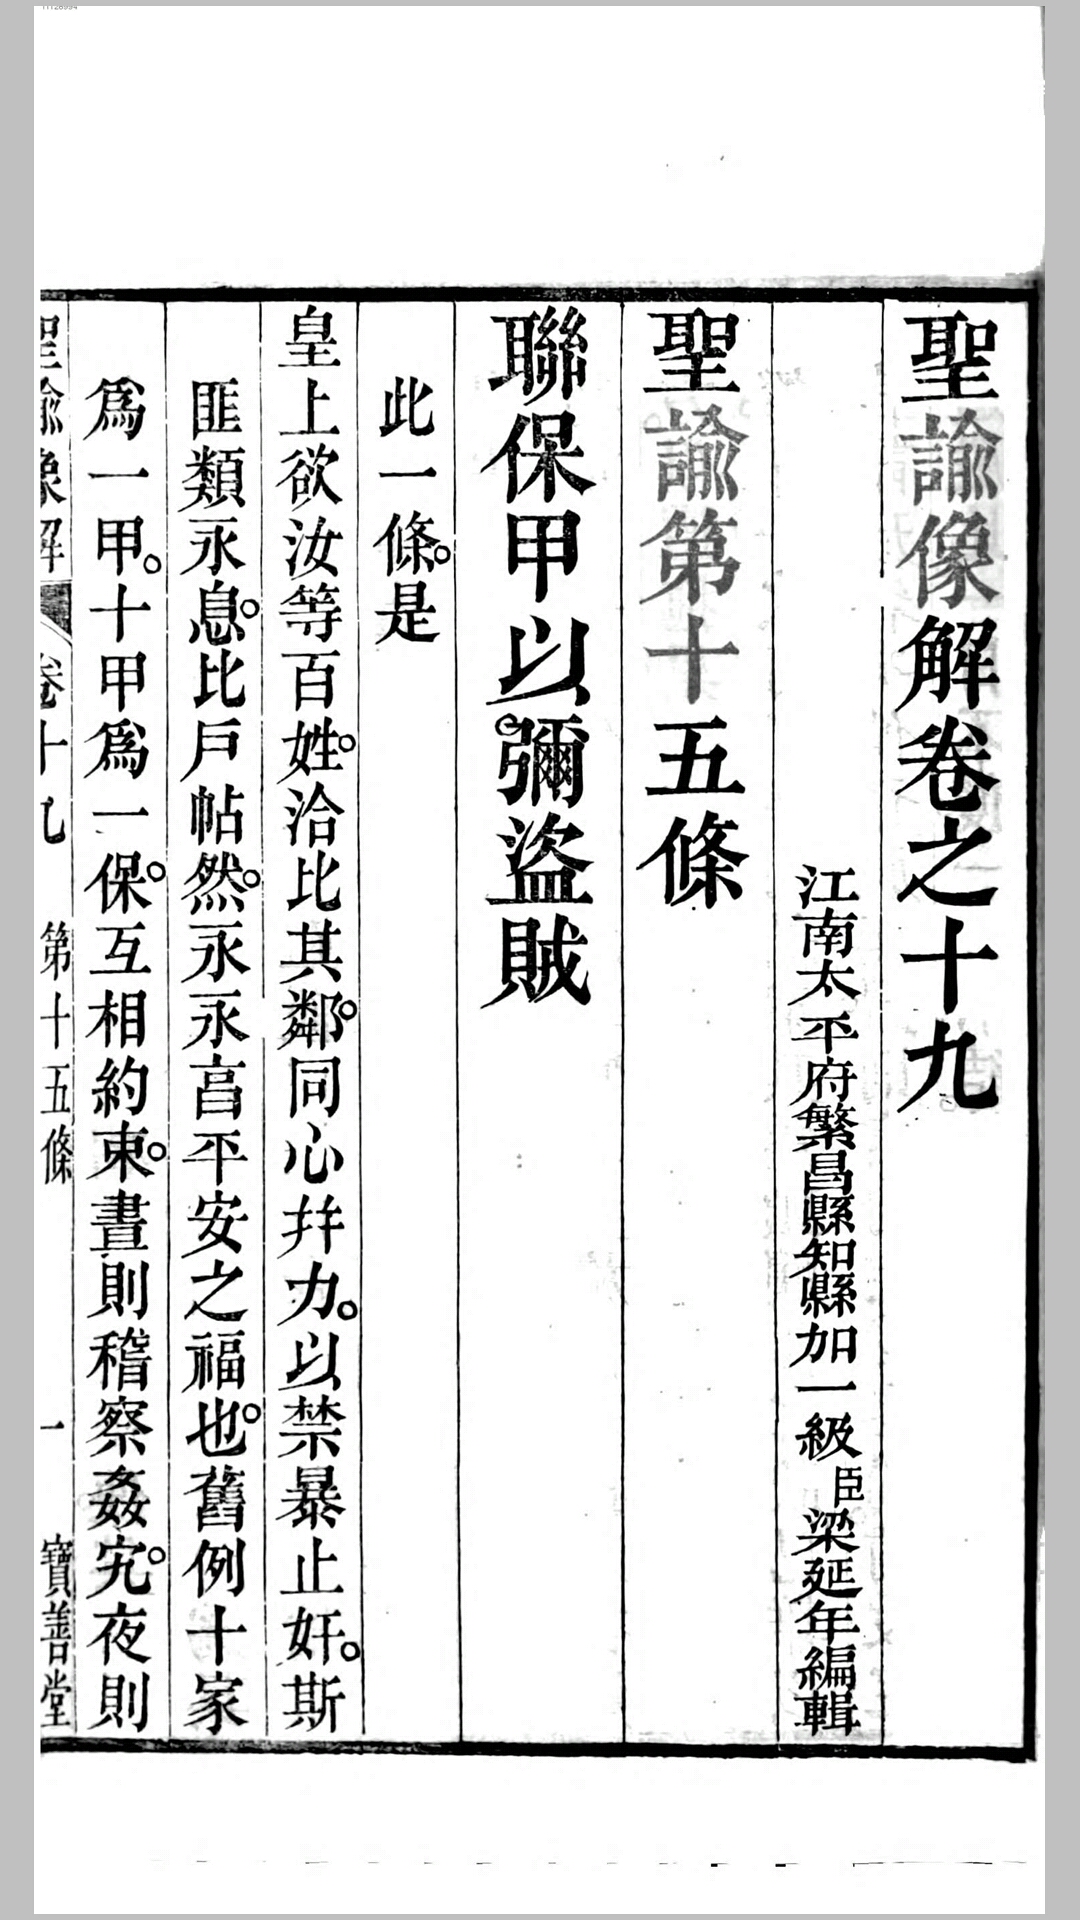 聖諭像解卷之十九
江南太平府繁昌縣知縣加一級臣梁延年編輯
聖諭第十五條
聯保甲以彌盜賊
此一條。是
皇上欲汝等百姓。洽比其鄰。同心幷力。以禁暴止奸。斯
匪類永息。比戶帖然。永永享平安之福也。舊例十家
爲一甲。十甲爲一保。互相約束。晝則稽察姦宄。夜則
聖諭像解 卷十九 第十五條 一 寶善堂